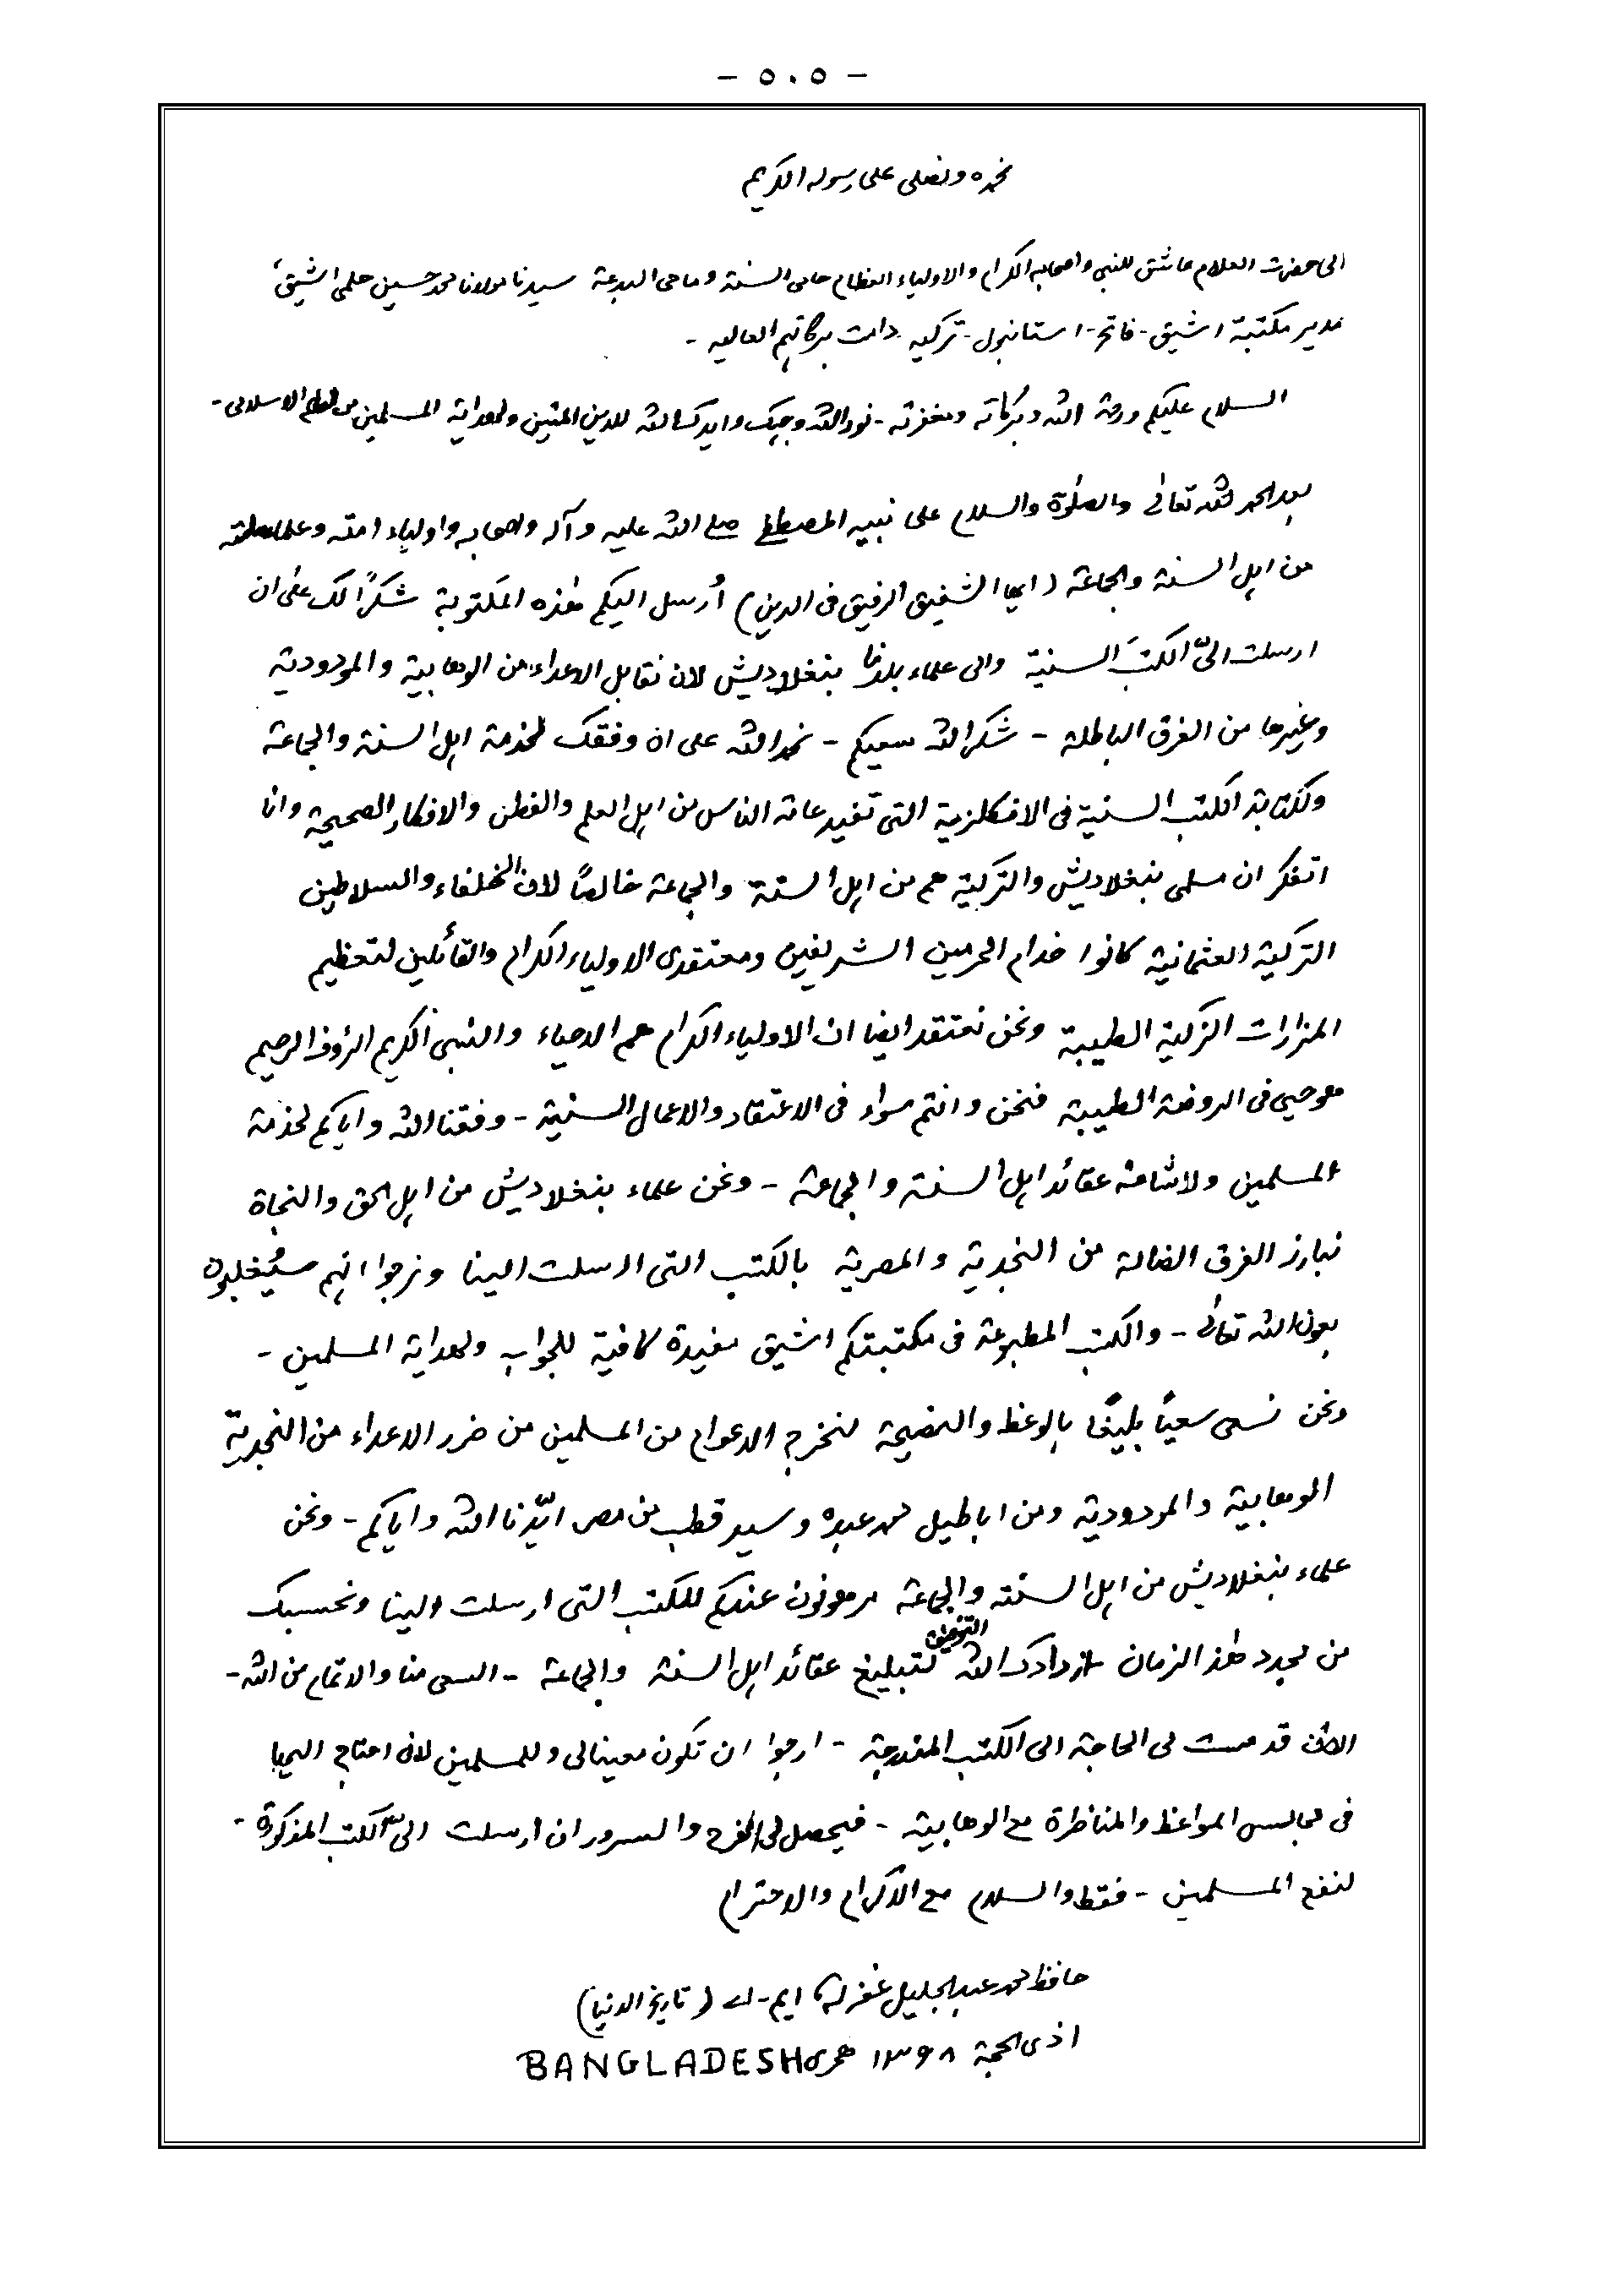 - ٥٠٥ -
نحمده ونصلى على رسوله الكريم
الى حضرت العلام عاشق النبى واصحابه الكرام والاولياء العظام حامى السنة وماحى البدعة سيدنا مولانا محمد حسين حلمى اشيق
مدير مكتبة اشيق - فاتح - استانبول - تركيه دامت بركاتهم العاليه -
السلام عليكم ورحمة الله وبركاته ومغفرته - نور الله وجهك وايدك الله للدين المتين ولهداية المسلمين الاسلامى -
بعد الحمد لله تعالى والصلوة والسلام على نبيه المصطفى صلى الله عليه وآله واصحابه واولياء امته وعلماء ملته
من اهل السنة والجماعة (ايها الشفيق الرفيق فى الدين) أرسل اليكم هذه المكتوبة شكرًا لك على ان
ارسلت الىّ الكتبَ السنية والى علماء بلدنا بنغلاديش لان نقابل الاعداء من الوهابية والمودودية
وغيرها من الفرق الباطلة - شكر الله سعيكم - نحمد الله على ان وفقك لخدمة اهل السنة والجماعة
ولكتابة الكتب السنية فى الانكلزية التى تفيد عامة الناس من اهل العلم والفطن والافكار الصحيحة وانا
اتفكر ان مسلمى بنغلاديش والتركية هم من اهل السنة والجماعة خالصًا لان الخلفاء والسلاطين
التركية العثمانية كانوا خدام الحرمين الشريفين ومعتقدى الاولياء الكرام والقائلين لتعظيم
المزارات الزكية الطيبة ونحن نعتقد ايضا ان الاولياء الكرام هم الاحياء والنبى الكريم الرؤف الرحيم
هو حيى فى الروضة الطيبة فنحن وانتم سواء فى الاعتقاد والاعمال السنية - وفقنا الله واياكم لخدمة
المسلمين ولاشاعة عقائد اهل السنة والجماعة - ونحن علماء بنغلاديش من اهل الحق والنجاة
نبارز الفرق الضالة من النجدية والمصرية بالكتب التى ارسلت الينا ونرجوا انهم سيُغلبون
بعون الله تعالى - والكتب المطبوعة فى مكتبتكم اشيق مفيدة كافية للجواب ولهداية المسلمين -
ونحن نسعى سعيًا بليغًا بالوعظ والنصيحة لنخرج الاعوام من المسلمين من ضرر الاعداء من النجدية
الوهابية والمودودية ومن اباطيل محمد عبده وسيد قطب من مصر ايّدنا الله واياكم - ونحن
علماء بنغلاديش من اهل السنة والجماعة مرهونون عندكم للكتب التى ارسلت الينا ونحسبك
من مجدد هذا الزمان زادك الله التوفيق لتبليغ عقائد اهل السنة والجماعة - السعى منا والاتمام من الله -
الآن قد مست لى الحاجة الى الكتب المندرجة - ارجوا ان تكون معينا لى وللمسلمين لان احتاج اليها
فى مجالس المواعظ والمناظرة مع الوهابية - فيحصل لى الفرح والسرور ان ارسلت الىّ الكتب المذكورة -
لنفع المسلمين - فقط والسلام مع الاكرام والاحترام
حافظ محمد عبد الجليل غفر له ايم - اے (تاريخ الدنيا)
ا ذى الحجة ١٣٩٨ هجرى BANGLADESH